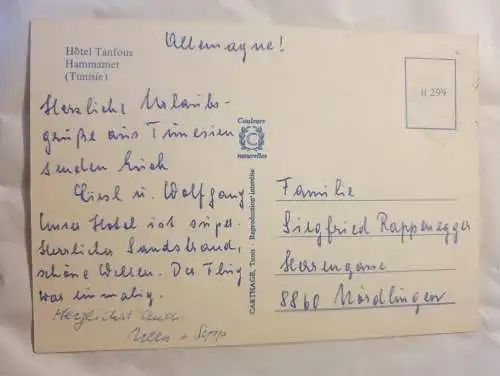 Hôtel Tanfous
Hammamet
(Tunisie)
Allemagne!
H 299
Herzliche Urlaubs-
grüße aus Tunesien
senden Euch
Giesl u. Wolfgang
Unser Hotel ist super.
Herrlicher Sandstrand,
schöne Wellen. Der Flug
war einmalig.
Herzlichst Eure
+ Sepp
Couleurs
C
naturelles
CARTHAGE, Tunis - Reproduction interdite
Familie
Siegfried Rappenegger
Herrengasse
8860 Nördlingen